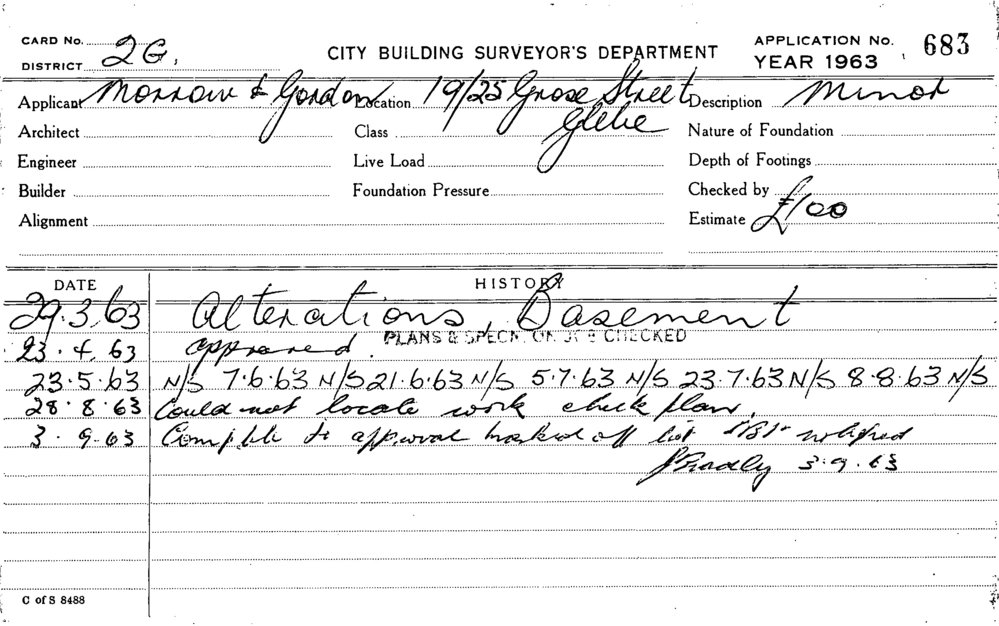 CARD No. 2G.
DISTRICT
CITY BUILDING SURVEYOR'S DEPARTMENT
APPLICATION No. 683
YEAR 1963
Applicant Morrow & Gordon Location 19/25 Grose Street Description Minor
Glebe
Architect Class Nature of Foundation
Engineer Live Load Depth of Footings
Builder Foundation Pressure Checked by
Alignment Estimate £100
DATE HISTORY
29.3.63 Alterations, Basement
PLANS & SPECN. CHECKED
23.4.63 approved.
23.5.63 N/S 7.6.63 N/S 21.6.63 N/S 5.7.63 N/S 23.7.63 N/S 8.8.63 N/S
28.8.63 Could not locate work check plan.
3.9.63 Complete to approval marked off list notified
3.9.63
C of S 8488